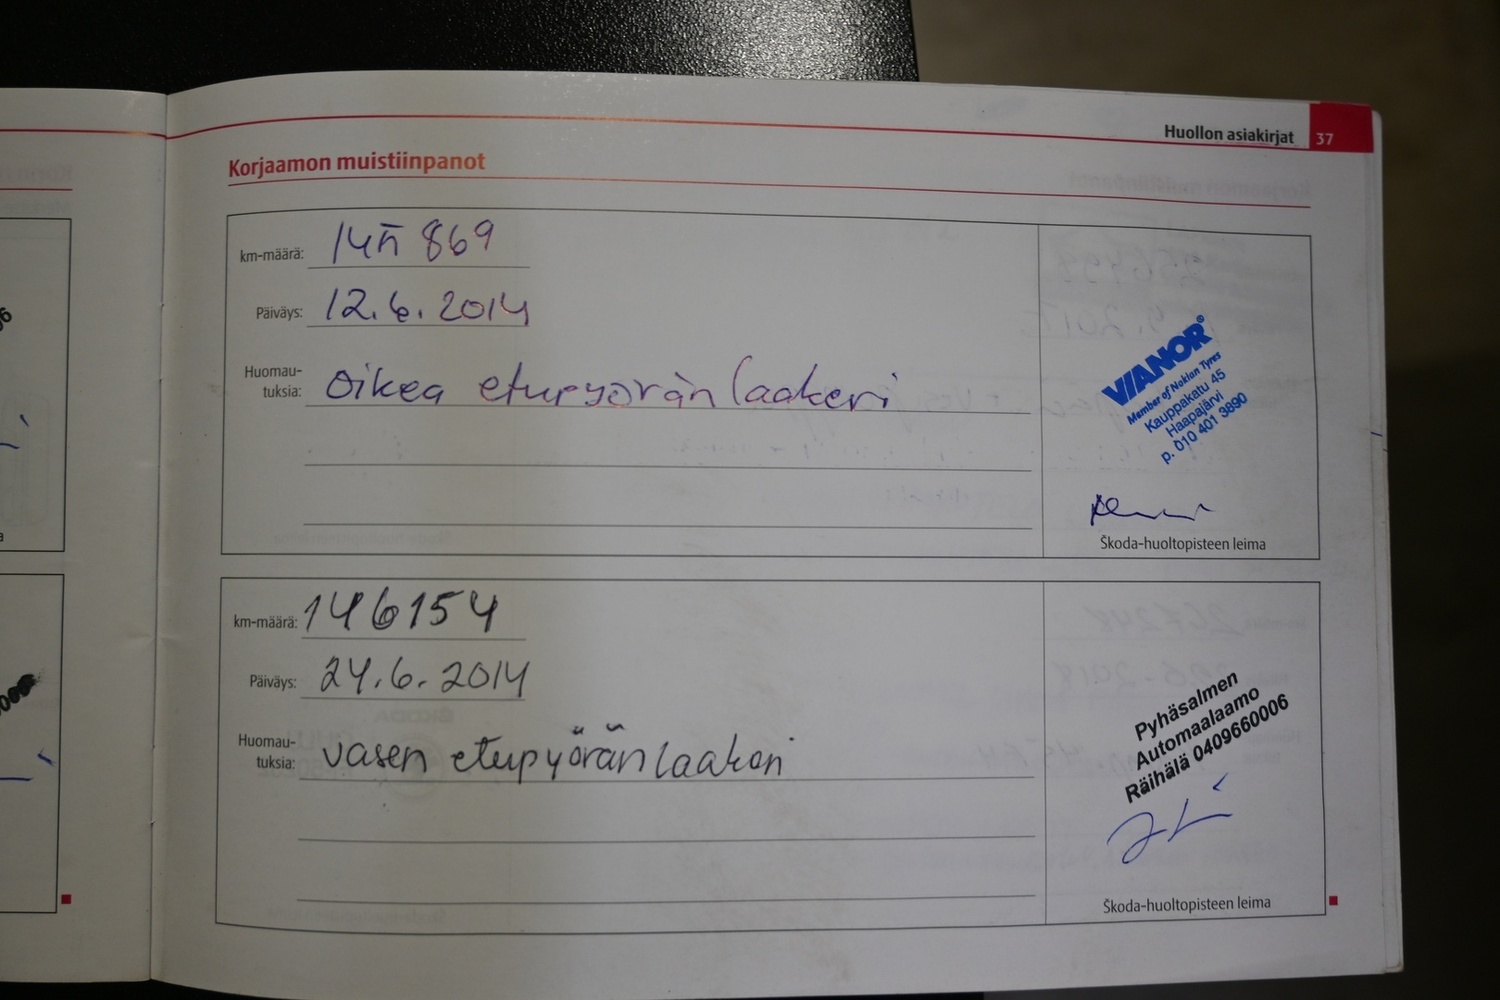 Huollon asiakirjat 37
Korjaamon muistiinpanot
km-määrä: 869
Päiväys: 12.6.2014
Huomau-
tuksia: Oikea etupyörän laakeri
VIANOR®
Member of Nokian Tyres
Kauppakatu 45
Haapajärvi
p. 010 401 3890
Škoda-huoltopisteen leima
km-määrä: 146154
Päiväys: 24.6.2014
Huomau-
tuksia: vasen etupyörän laakeri
Pyhäsalmen
Automaalaamo
Räihälä 0409660006
Škoda-huoltopisteen leima